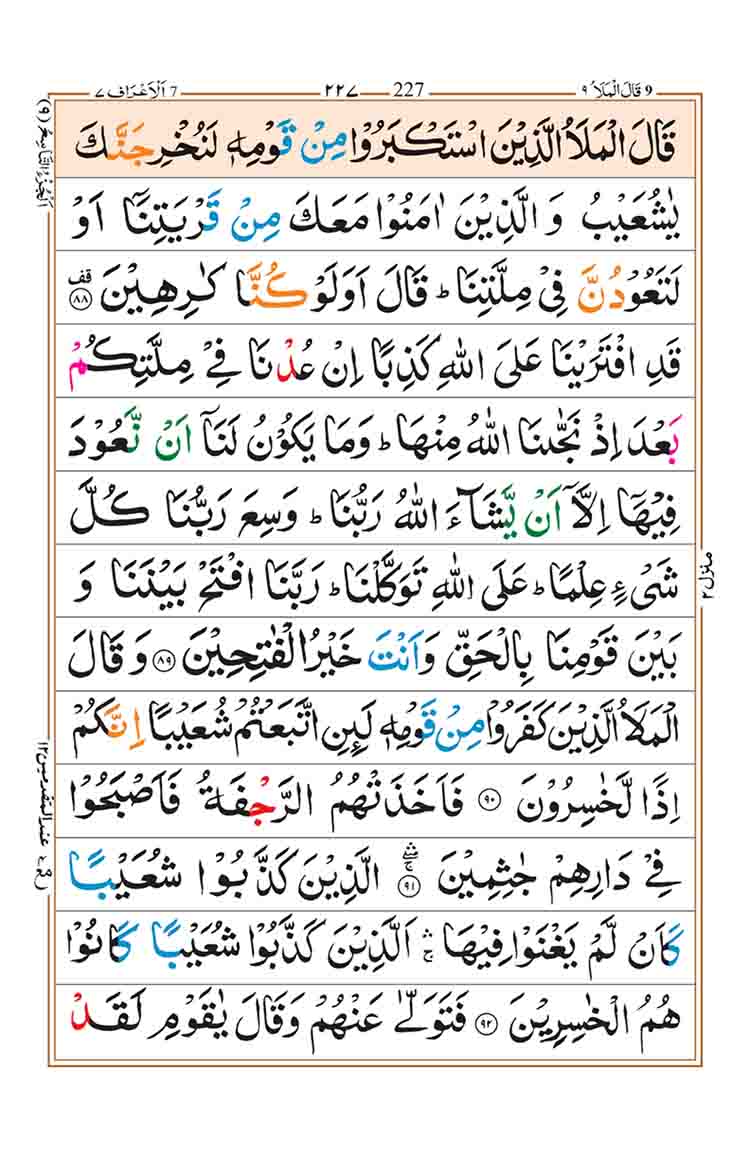 9 قَالَ الْمَلَاُ ٩ 227 ٢٢٧ 7 اَلْاَعْرَاف ٧
اَلْجُزْءُ التَّاسِعُ (٩)
قَالَ الْمَلَاُ الَّذِيْنَ اسْتَكْبَرُوْا مِنْ قَوْمِهٖ لَنُخْرِجَنَّكَ
يٰشُعَيْبُ وَ الَّذِيْنَ اٰمَنُوْا مَعَكَ مِنْ قَرْيَتِنَاۤ اَوْ
لَتَعُوْدُنَّ فِيْ مِلَّتِنَا ؕ قَالَ اَوَلَوْ كُنَّا كٰرِهِيْنَ ۟قف ﴿٨٨﴾
قَدِ افْتَرَيْنَا عَلَى اللّٰهِ كَذِبًا اِنْ عُدْنَا فِيْ مِلَّتِكُمْ
بَعْدَ اِذْ نَجّٰىنَا اللّٰهُ مِنْهَا ؕ وَمَا يَكُوْنُ لَنَاۤ اَنْ نَّعُوْدَ
فِيْهَاۤ اِلَّاۤ اَنْ يَّشَآءَ اللّٰهُ رَبُّنَا ؕ وَسِعَ رَبُّنَا كُلَّ
شَيْءٍ عِلْمًا ؕ عَلَى اللّٰهِ تَوَكَّلْنَا ؕ رَبَّنَا افْتَحْ بَيْنَنَا وَ
بَيْنَ قَوْمِنَا بِالْحَقِّ وَاَنْتَ خَيْرُ الْفٰتِحِيْنَ ﴿٨٩﴾ وَ قَالَ
الْمَلَاُ الَّذِيْنَ كَفَرُوْا مِنْ قَوْمِهٖ لَىِٕنِ اتَّبَعْتُمْ شُعَيْبًا اِنَّكُمْ
اِذًا لَّخٰسِرُوْنَ ﴿٩٠﴾ فَاَخَذَتْهُمُ الرَّجْفَةُ فَاَصْبَحُوْا
فِيْ دَارِهِمْ جٰثِمِيْنَ ۛۚ ﴿٩١﴾ الَّذِيْنَ كَذَّبُوْا شُعَيْبًا
كَاَنْ لَّمْ يَغْنَوْا فِيْهَا ۛۚ اَلَّذِيْنَ كَذَّبُوْا شُعَيْبًا كَانُوْا
هُمُ الْخٰسِرِيْنَ ﴿٩٢﴾ فَتَوَلّٰى عَنْهُمْ وَقَالَ يٰقَوْمِ لَقَدْ
منزل ٢
عند المتقدمين ١٢